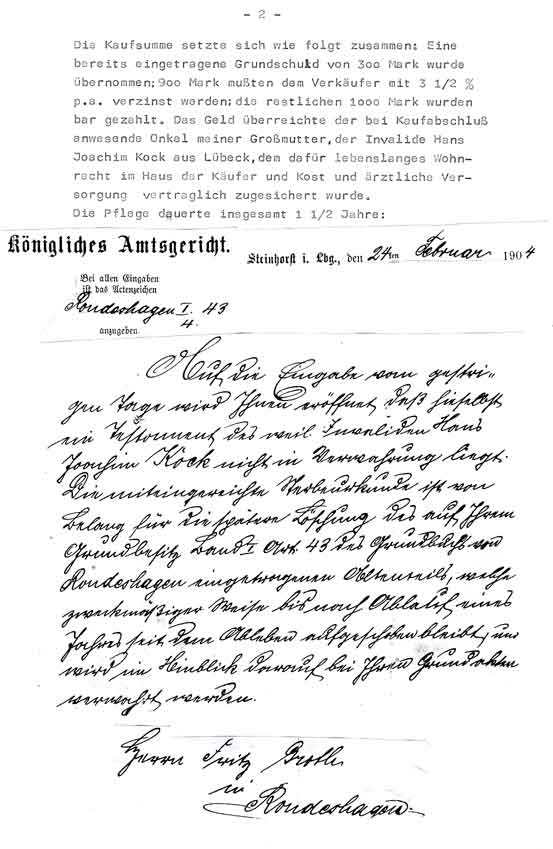 - 2 -
Die Kaufsumme setzte sich wie folgt zusammen: Eine
bereits eingetragene Grundschuld von 300 Mark wurde
übernommen; 900 Mark mußten dem Verkäufer mit 3 1/2 %
p.a. verzinst werden; die restlichen 1000 Mark wurden
bar gezahlt. Das Geld überreichte der bei Kaufabschluß
anwesende Onkel meiner Großmutter, der Invalide Hans
Joachim Kock aus Lübeck, dem dafür lebenslanges Wohn-
recht im Haus der Käufer und Kost und ärztliche Ver-
sorgung vertraglich zugesichert wurde.
Die Pflege dauerte insgesamt 1 1/2 Jahre:
Königliches Amtsgericht.
Steinhorst i. Lbg., den 24ten Februar 1904
Bei allen Eingaben
ist das Actenzeichen
Rondeshagen I. 43
4.
anzugeben
Auf die Eingabe vom gestri-
gen Tage wird Ihnen eröffnet, daß hieselbst
ein Testament des weil. Invaliden Hans
Joachim Kock nicht in Verwahrung liegt.
Die miteingereichte Sterbeurkunde ist von
Belang für die spätere Löschung des auf Ihrem
Grundbesitz Band I Art. 43 des Grundbuchs von
Rondeshagen eingetragenen Altenteils, welche
zweckmäßiger Weise bis nach Ablauf eines
Jahres seit dem Ableben aufgeschoben bleibt, und
wird im Hinblick darauf bei Ihren Grundakten
verwahrt werden.
Herrn Fritz
in
Rondeshagen.